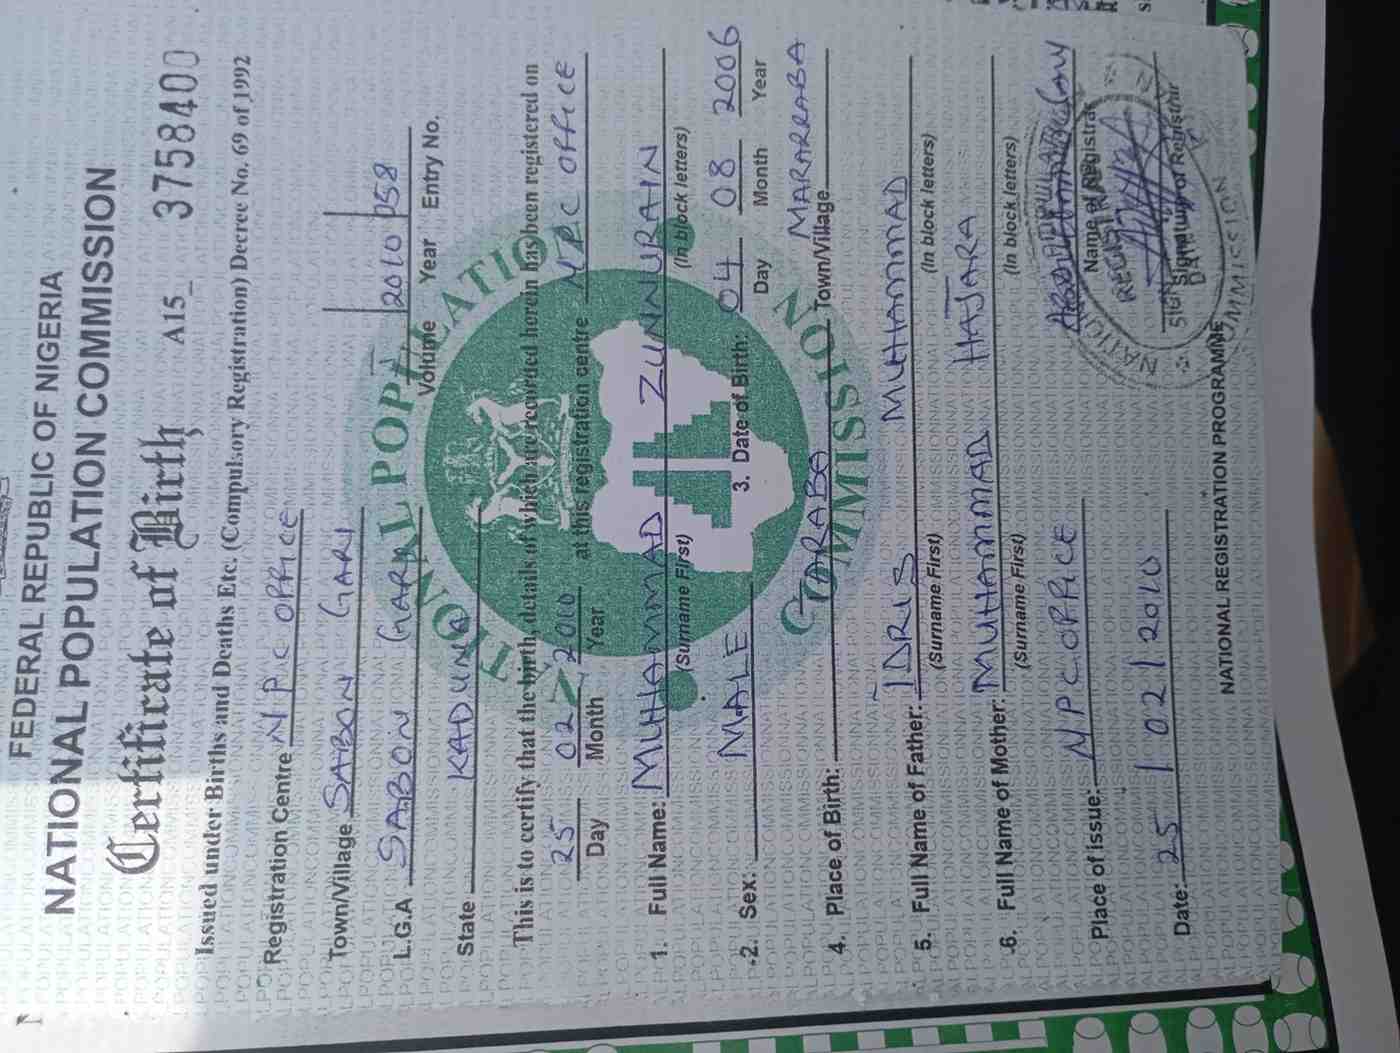 FEDERAL REPUBLIC OF NIGERIA
NATIONAL POPULATION COMMISSION
Certificate of Birth
A15_ 3758400
Issued under Births and Deaths Etc. (Compulsory Registration) Decree No. 69 of 1992
Registration Centre N P.C OFFICE
Town/Village SABON GARI
L.G.A SABON GARI 2010 058
Volume Year Entry No.
State KADUNA
This is to certify that the birth, details of which are recorded herein has been registered on
25 02 2010 at this registration centre N.P.C OFFICE
Day Month Year
1. Full Name: MUHAMMAD ZUNNURAIN
(Surname First) (In block letters)
2. Sex: MALE 3. Date of Birth: 04 08 2006
Day Month Year
4. Place of Birth: Town/Village MARARRABA
5. Full Name of Father: IDRIS MUHAMMAD
(Surname First) (In block letters)
6. Full Name of Mother: MUHAMMAD HAJARA
(Surname First) (In block letters)
Place of Issue: NPC OFFICE
Name of Registrar
Date: 25 | 02 | 2010
Signature of Registrar
NATIONAL REGISTRATION PROGRAMME
NATIONAL POPULATION
COMMISSION